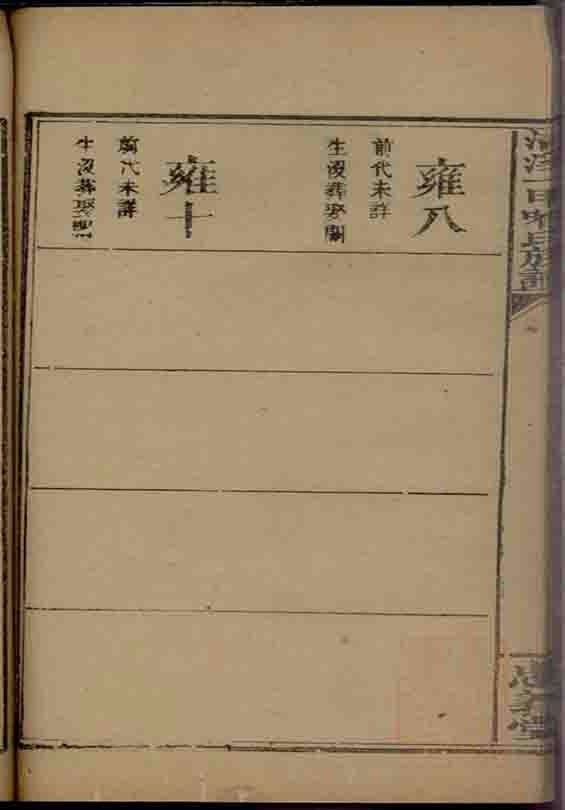 雍八
前代未詳
生沒葬娶闕
雍十
前代未詳
生沒葬娶闕
氏族譜
堂